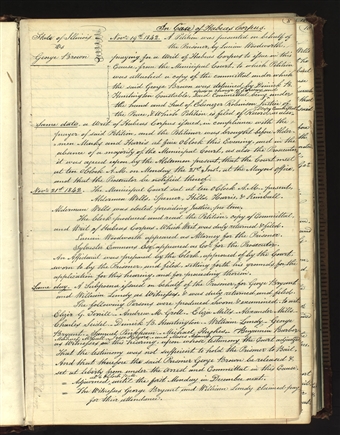 In Case of Habeas Corpus.
State of Illinois
vs
George Brown
Nov. 19th 1842. A Petition was presented in behalf of
the Prisoner, by Lucien Woodworth,
praying for a Writ of Habeas Corpus to issue in this
Cause, from the Municipal Court, to which Petition
was attached a copy of the committal under which
the said George Brown was detained by
Huntington Constable,
the hand and Seal of Ebenezer Robinson Justice of
the Peace, & Which Petition is filed of Record,
Same date, a Writ of Habeas Corpus issued, in compliance with the
prayer of said Petition, and the Petitioner was brought before Alder-
men and Harris at four O'Clock this Evening, and in the
absence of a majority of the Municipal Court, as also the Prosecutor
it was agreed upon by the Aldermen present, that the Court meet
at ten O'Clock A.M. on Monday the 21st inst, at the Mayor's office
and that the Prosecutor be notified thereof.
Nov. 21st 1842. The Municipal Court sat at ten O'Clock A.M., present
Aldermen Wells, Spencer, Hills, Harris, & Kimball.
Alderman Wells was elected presiding Justice pro tem.
The Clerk produced and read the Petition, copy of Committal
and Writ of Habeas Corpus, Which Writ was duly returned & filed.
Lucien Woodworth appeared as Attorney for the Prisoner.
Sylvester Emmons Esq. appeared as Co. for the Prosecutor.
An Affidavit was prepared by the Clerk, approved of by the Court,
sworn to by the Prisoner, and filed, setting forth the grounds for the
application for this hearing, and for proceeding therein.
Same day, A Subpoena issued on behalf of the Prisoner, for George Bryant
and William Lundy as Witnesses, & was duly returned and filed.
The following Persons were produced, Sworn & examined: to wit
Andrew M. Alexander Mills
Charles Huntington, William Lundy, George
Bryant, Michael Stephen, Benjamin
as Witnesses in this Hearing, upon whose testimony the Court adjudged
That the testimony was not sufficient to hold the Prisoner to Bail
And that therefore the said Prisoner George Brown, be released &
set at liberty from under the Arrest and Committal in this Cause.
Adjourned until the first Monday in December next.
The Witnesses George Bryant and William Lundy claimed pay
for their attendance.